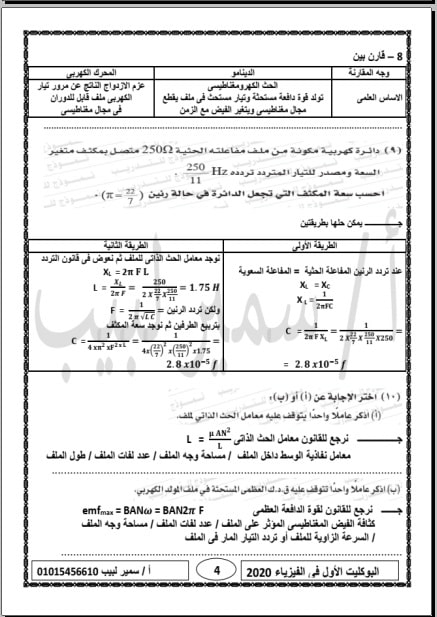 8 – قارن بين
وجه المقارنة
الدينامو
المحرك الكهربي
الاساس العلمى
الحث الكهرومغناطيسى
تولد قوة دافعة مستحثة وتيار مستحث فى ملف يقطع
مجال مغناطيسى ويتغير الفيض مع الزمن
عزم الازدواج الناتج عن مرور تيار
الكهربى ملف قابل للدوران
فى مجال مغناطيسى
(٩) دائرة كهربية مكونة من ملف مفاعلته الحثية 250Ω متصل بمكثف متغير
السعة ومصدر للتيار المتردد تردده 250/11 Hz .
احسب سعة المكثف التي تجعل الدائرة في حالة رنين (π = 22/7) .
جـ يمكن حلها بطريقتين
الطريقة الأولى
عند تردد الرنين المفاعلة الحثية = المفاعلة السعوية
XL = XC
XL = 1/2πFC
C = 1/2π F XL = 1/2 X 22/7 X 250/11 X250 =
= 2.8 x10⁻⁵ f
الطريقة الثانية
نوجد معامل الحث الذاتى للملف ثم نعوض فى قانون التردد
XL = 2π F L
L = XL/2π F = 250/2 X 22/7 X 250/11 = 1.75 H
ولكن تردد الرنين = F = 1/2 π √L C
بتربيع الطرفين ثم نوجد سعة المكثف
C = 1/4 xπ² xF² x L = 1/4x(22/7)² x(250/11)² x1.75 =
2.8 x10⁻⁵ f
(١٠) اختر الإجابة عن (أ) أو (ب):
(أ) اذكر عاملًا واحدًا يتوقف عليه معامل الحث الذاتي لملف.
جـ نرجع للقانون معامل الحث الذاتى L = μ AN²/L
معامل نفاذية الوسط داخل الملف / مساحة وجه الملف / عدد لفات الملف / طول الملف
(ب) اذكر عاملًا واحدًا تتوقف عليه ق.د.ك العظمى المستحثة في ملف المولد الكهربي.
جـ نرجع للقانون لقوة الدافعة العظمى emfmax = BANω = BAN2π F
كثافة الفيض المغناطيسى المؤثر على الملف / عدد لفات الملف / مساحة وجه الملف
/ السرعة الزاوية للملف أو تردد التيار المار فى الملف
البوكليت الأول فى الفيزياء 2020
4
أ / سمير لبيب 01015456610
أ/ سمير لبيب